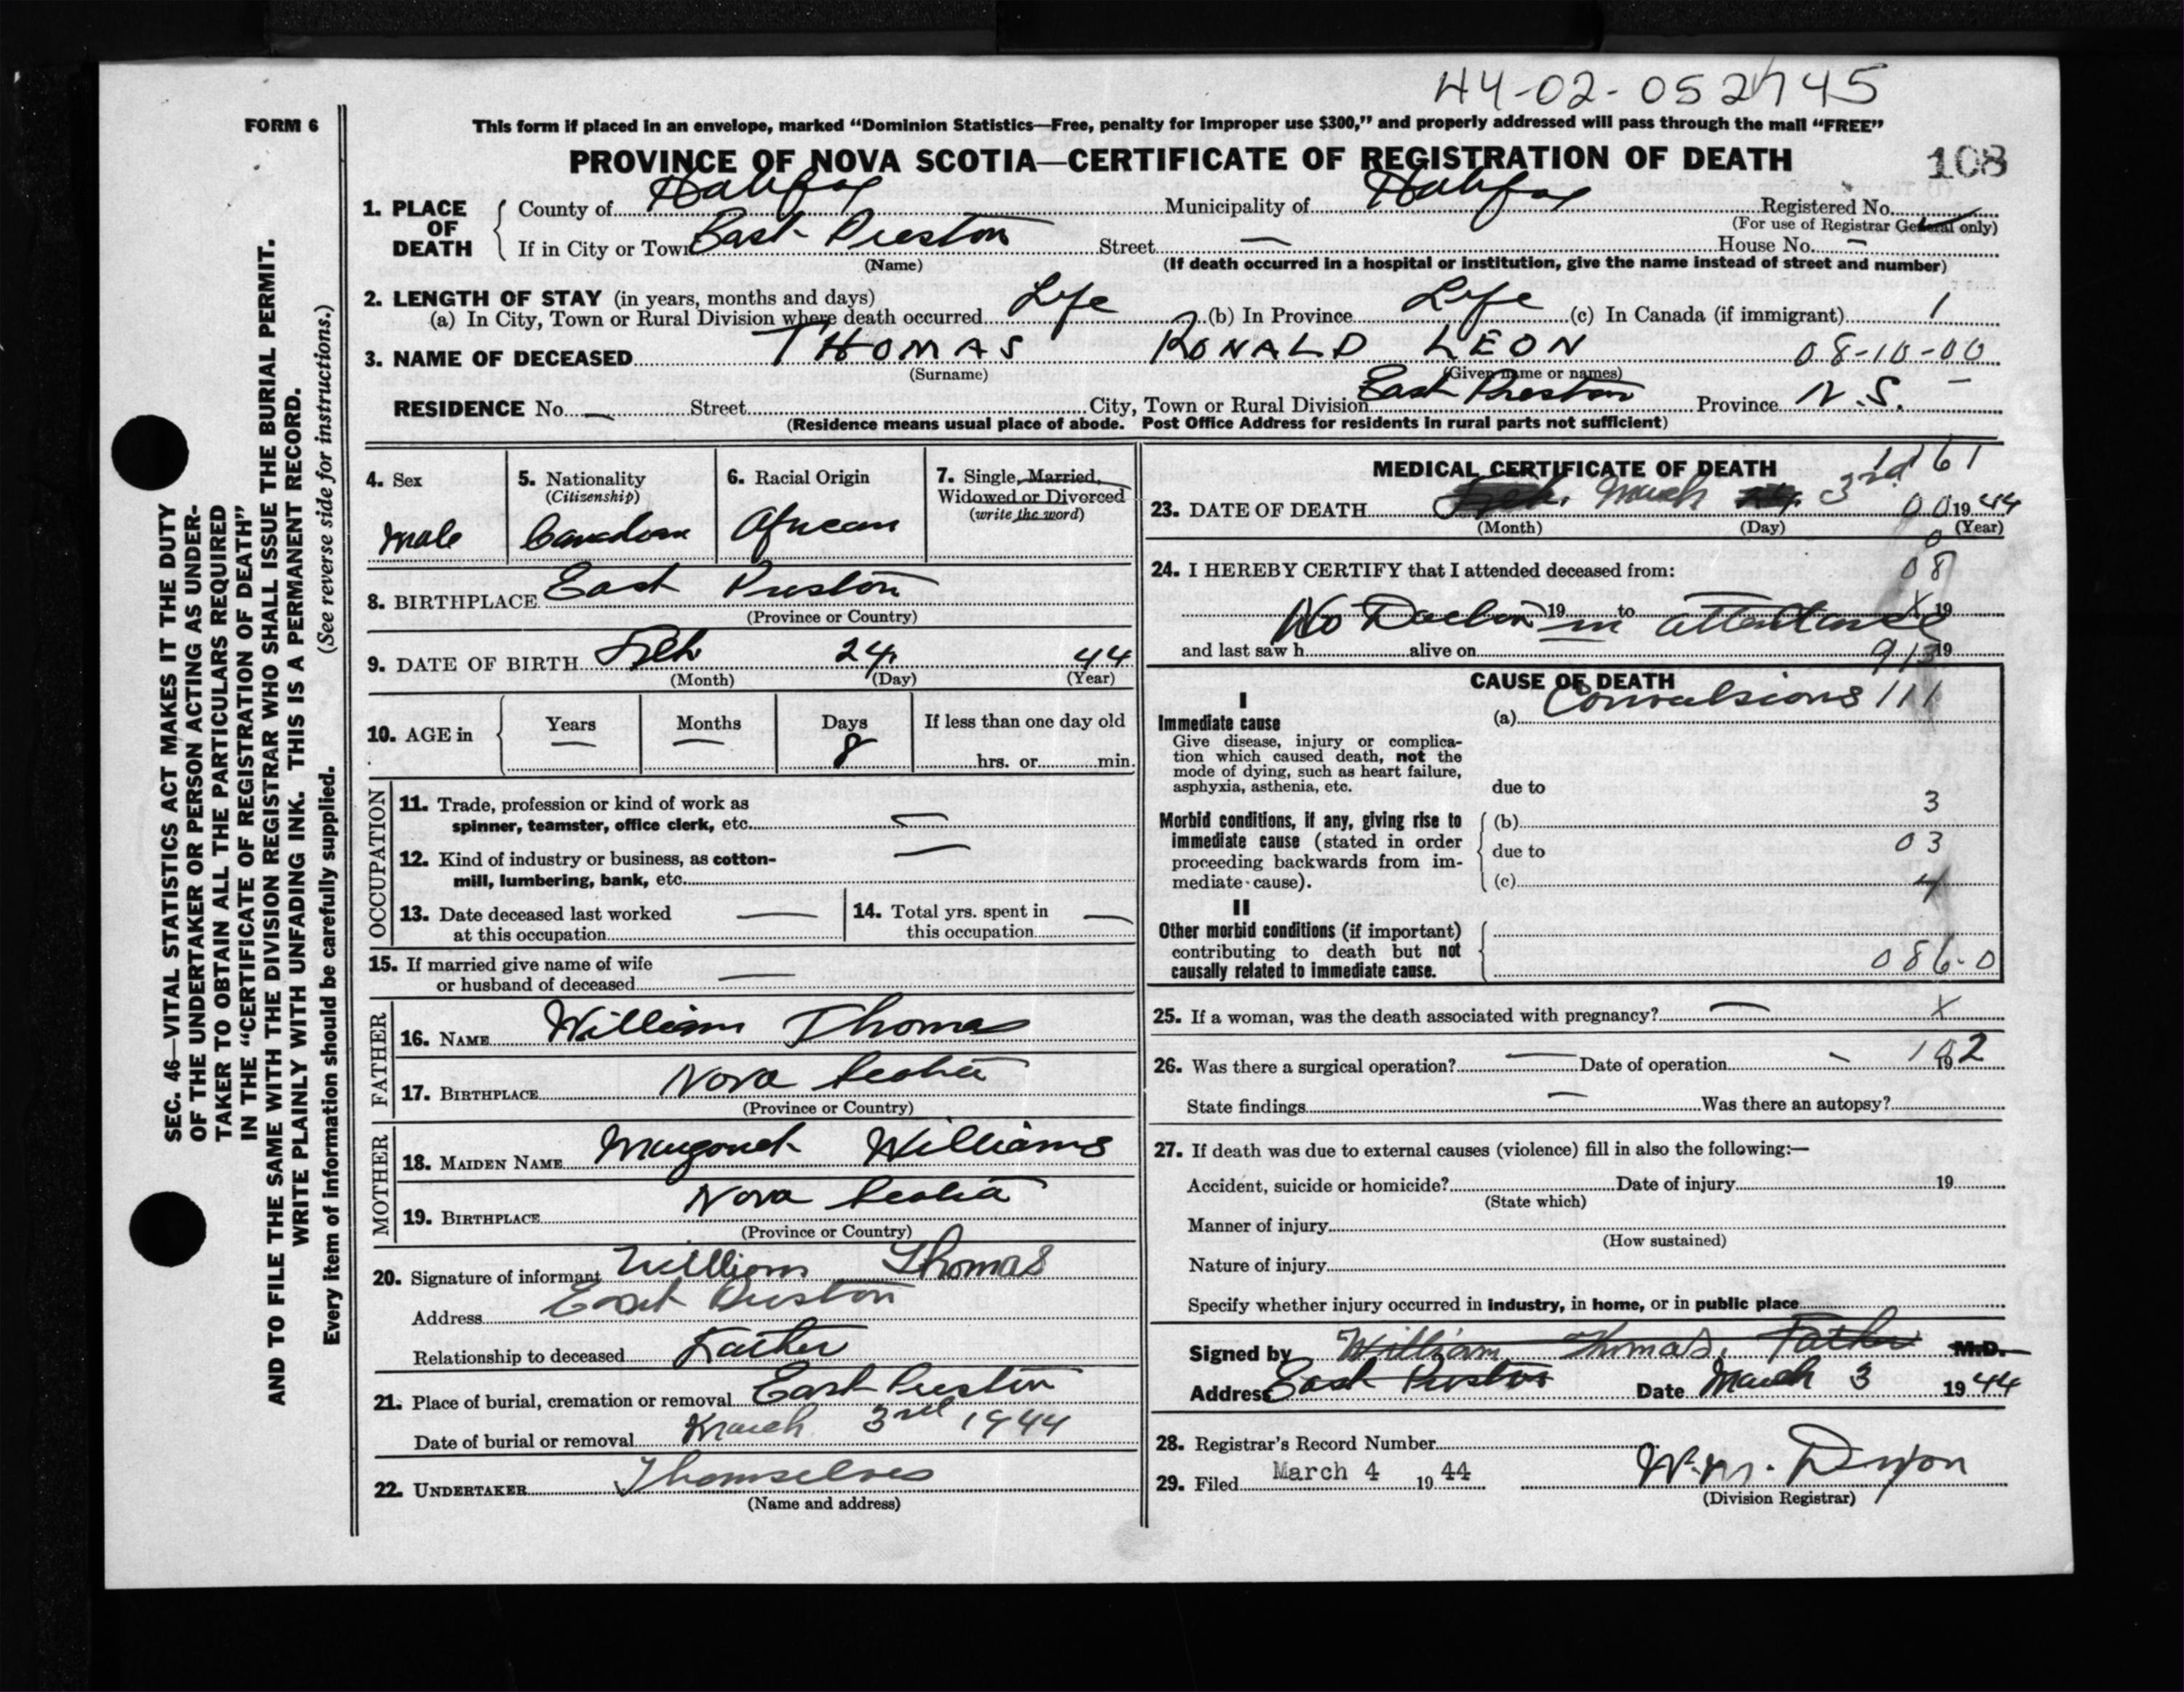 44-02-052745
FORM 6
This form if placed in an envelope, marked “Dominion Statistics—Free, penalty for improper use $300,” and properly addressed will pass through the mail “FREE”
PROVINCE OF NOVA SCOTIA—CERTIFICATE OF REGISTRATION OF DEATH
108
1. PLACE OF DEATH
County of Halifax Municipality of Halifax Registered No.
(For use of Registrar General only)
If in City or Town East Preston Street — House No. —
(Name) (If death occurred in a hospital or institution, give the name instead of street and number)
2. LENGTH OF STAY (in years, months and days)
(a) In City, Town or Rural Division where death occurred Life (b) In Province Life (c) In Canada (if immigrant) 1
3. NAME OF DECEASED THOMAS RONALD LEON 08-10-00
(Surname) (Given name or names)
RESIDENCE No. — Street City, Town or Rural Division East Preston Province N.S.
(Residence means usual place of abode. Post Office Address for residents in rural parts not sufficient)
4. Sex
male
5. Nationality
(Citizenship)
Canadian
6. Racial Origin
African
7. Single, Married,
Widowed or Divorced
(write the word)
8. BIRTHPLACE East Preston
(Province or Country)
9. DATE OF BIRTH Feb 24 44
(Month) (Day) (Year)
10. AGE in
Years Months Days If less than one day old
— — 8 hrs. or min.
OCCUPATION
11. Trade, profession or kind of work as
spinner, teamster, office clerk, etc. —
12. Kind of industry or business, as cotton-
mill, lumbering, bank, etc. —
13. Date deceased last worked
at this occupation —
14. Total yrs. spent in
this occupation —
15. If married give name of wife
or husband of deceased —
FATHER
16. NAME William Thomas
17. BIRTHPLACE Nova Scotia
(Province or Country)
MOTHER
18. MAIDEN NAME Margaret Williams
19. BIRTHPLACE Nova Scotia
(Province or Country)
20. Signature of informant William Thomas
Address East Preston
Relationship to deceased Father
21. Place of burial, cremation or removal East Preston
Date of burial or removal March 3rd 1944
22. UNDERTAKER Themselves
(Name and address)
MEDICAL CERTIFICATE OF DEATH
1161
23. DATE OF DEATH Feb. March 24 3rd 00 1944
(Month) (Day) (Year)
0
24. I HEREBY CERTIFY that I attended deceased from:
08
No Doctor 19 in to attendance X 19
and last saw h alive on 913 19
CAUSE OF DEATH
I
Immediate cause
Give disease, injury or complica-
tion which caused death, not the
mode of dying, such as heart failure,
asphyxia, asthenia, etc.
(a) Convulsions 111
due to
Morbid conditions, if any, giving rise to
immediate cause (stated in order
proceeding backwards from im-
mediate cause).
3
(b)
due to 03
(c) 4
II
Other morbid conditions (if important)
contributing to death but not
causally related to immediate cause.
086.0
25. If a woman, was the death associated with pregnancy? — X
26. Was there a surgical operation? — Date of operation — 19
State findings — Was there an autopsy?
27. If death was due to external causes (violence) fill in also the following:—
Accident, suicide or homicide? Date of injury 19
(State which)
Manner of injury
(How sustained)
Nature of injury
Specify whether injury occurred in industry, in home, or in public place
Signed by William Thomas, Father M.D.
Address East Preston Date March 3 1944
28. Registrar's Record Number
29. Filed March 4 19 44 W.M. Dyson
(Division Registrar)
SEC. 46—VITAL STATISTICS ACT MAKES IT THE DUTY
OF THE UNDERTAKER OR PERSON ACTING AS UNDER-
TAKER TO OBTAIN ALL THE PARTICULARS REQUIRED
IN THE “CERTIFICATE OF REGISTRATION OF DEATH”
AND TO FILE THE SAME WITH THE DIVISION REGISTRAR WHO SHALL ISSUE THE BURIAL PERMIT.
WRITE PLAINLY WITH UNFADING INK. THIS IS A PERMANENT RECORD.
Every item of information should be carefully supplied. (See reverse side for instructions.)